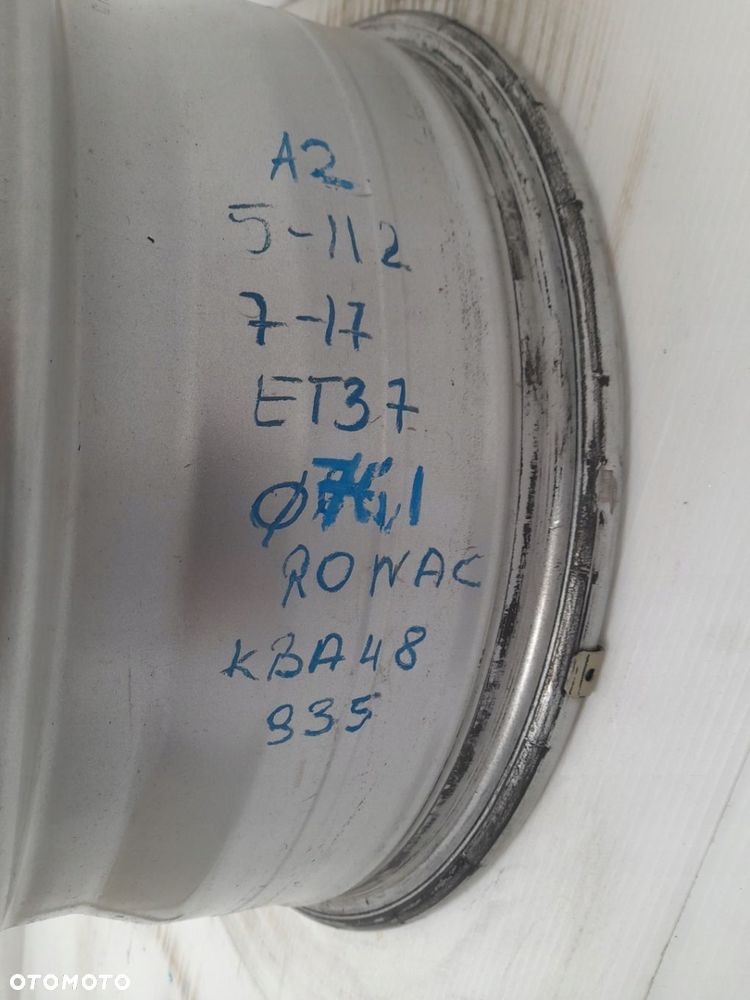 A2
5-112
7-17
ET37
RONAC
KBA48
935
OTOMOTO